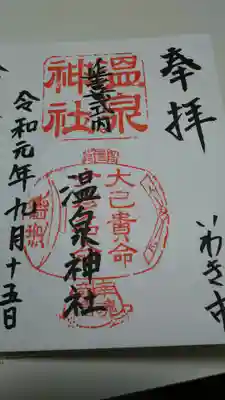 奉拝
いわき市
延喜式内
温泉
神社
大己貴命
温泉神社
令和元年九月十五日